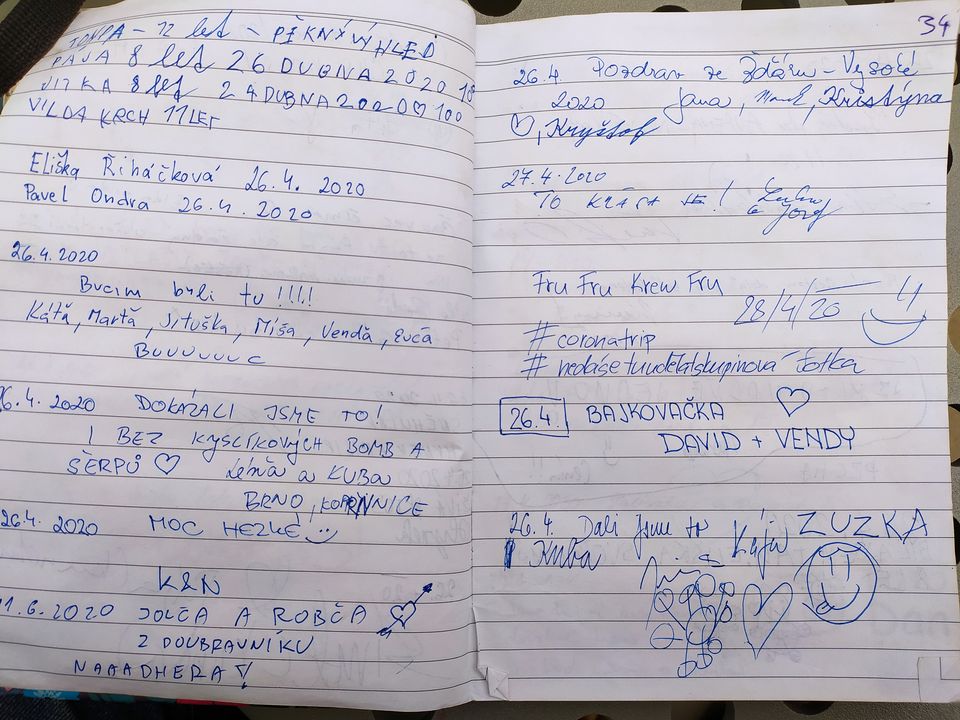 TONDA - 12 let - PĚKNÝ VÝHLED
PÁJA 8 let 26 DUBNA 2020
JITKA 8 let 24 DUBNA 2020 ♡ 100
VILDA KRCH 11 LET
Eliška Řiháčková 26.4. 2020
Pavel Ondra 26.4.2020
26.4.2020
Bucim byli tu !!!!
Kátă, Martă, Jituška, Míša, Vendă, Eučа
Buuuuuuc
26.4. 2020 DOKÁZALI JSME TO!
I BEZ KYSLÍKOVÝCH BOMB A
ŠERPŮ ♡ Lénia a KUBA
BRNO,
26.4. 2020 MOC HEZKÉ
K&N
1.6.2020 JOLČA A ROBČA
Z DOUBRAVNÍKU
NAAADHERA!
34
26.4. Pozdrav ze Žďáru - Vysoké
2020 Jana, Marek, Kristýna
♡, Kryštof
27.4.2020
TO KRÁSA JE!
a Jozef
Fru Fru Krew Fru
28/4/20
#coronatrip
#nedášetuudělatskupinová fotka
26.4. BAJKOVAČKA ♡
DAVID + VENDY
26.4. Dali jsme to Kája ZUZKA
Kuba